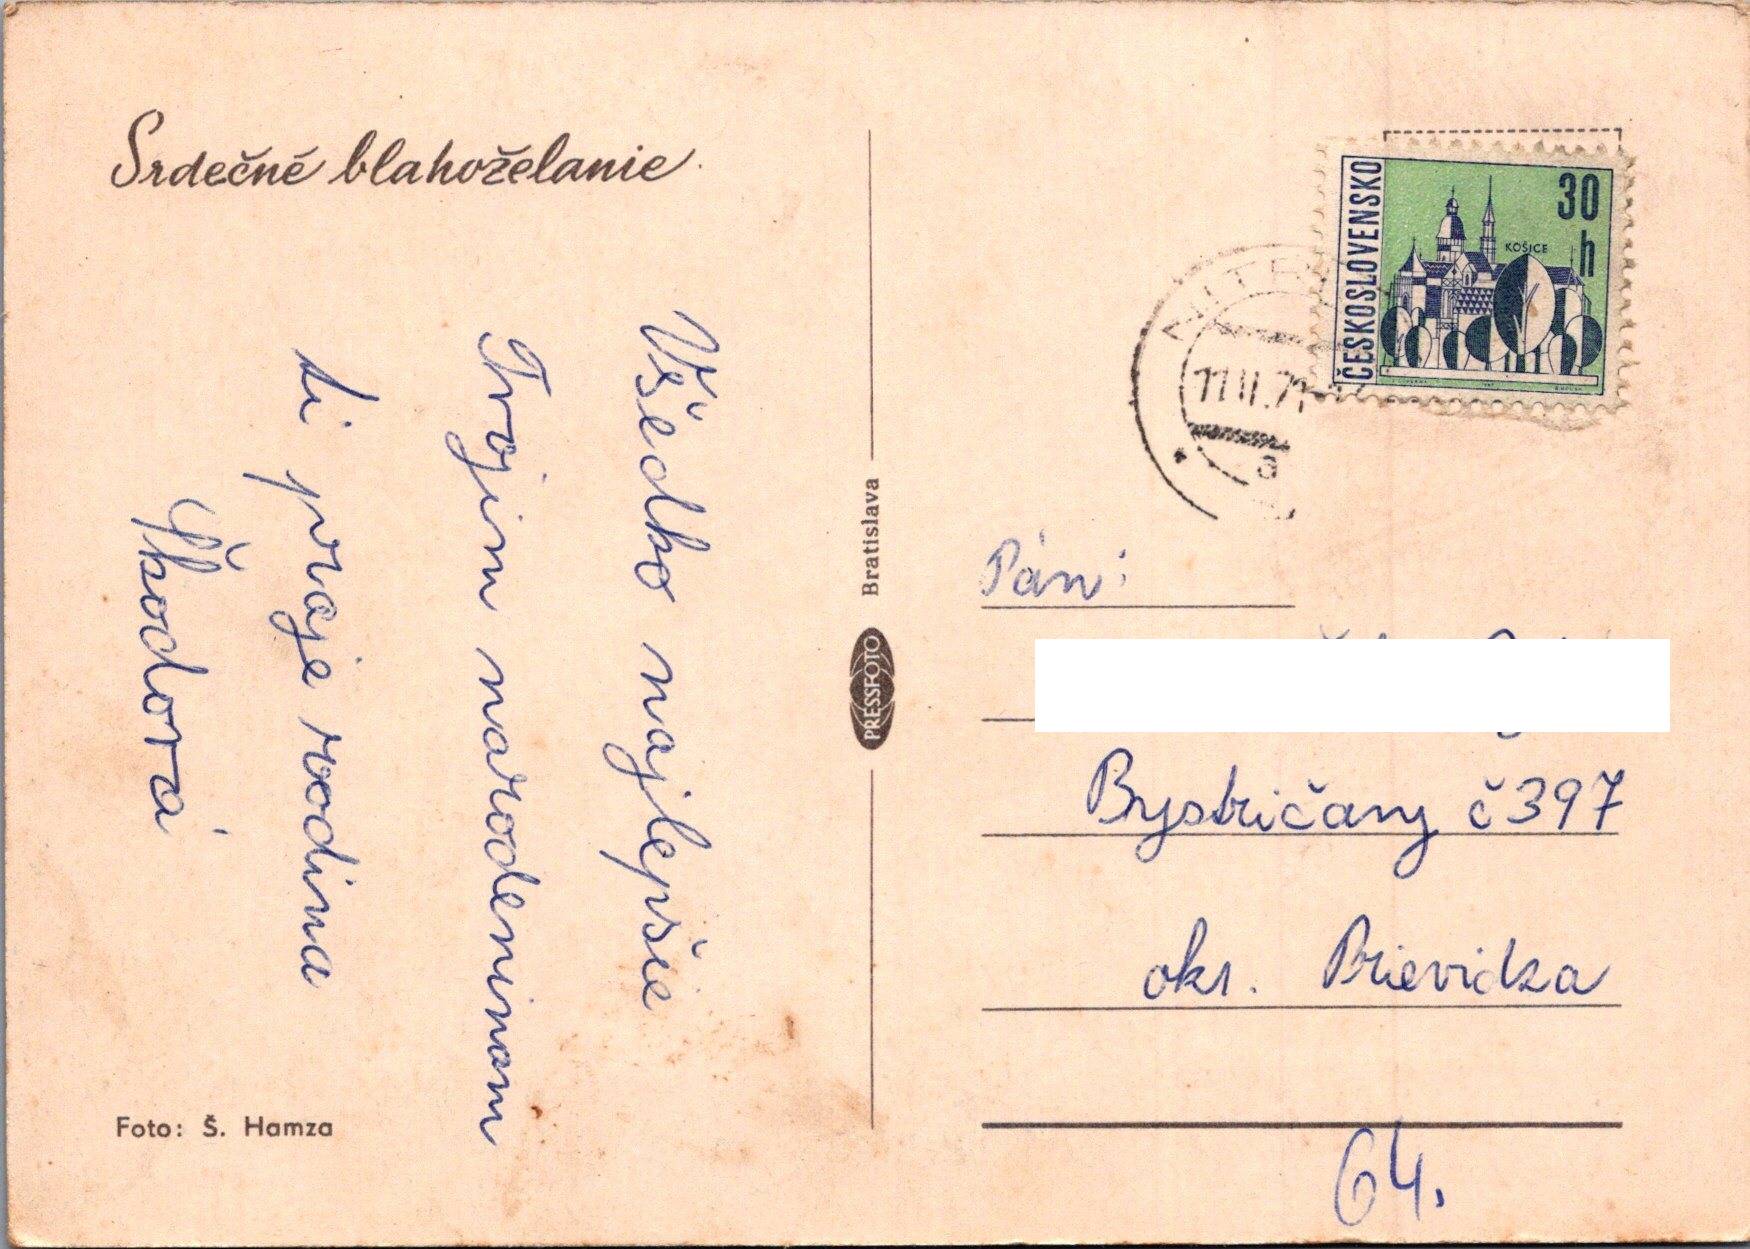 Srdečné blahoželanie
Všedko najlepšie
Tvojim narodeninam
ti praje rodina
Škodová
Foto: Š. Hamza
PRESSFOTO Bratislava
ČESKOSLOVENSKO
30
h
KOŠICE
NITRA
11.II.71
a
Pán:
Bystričany č 397
okr. Prievidza
64.